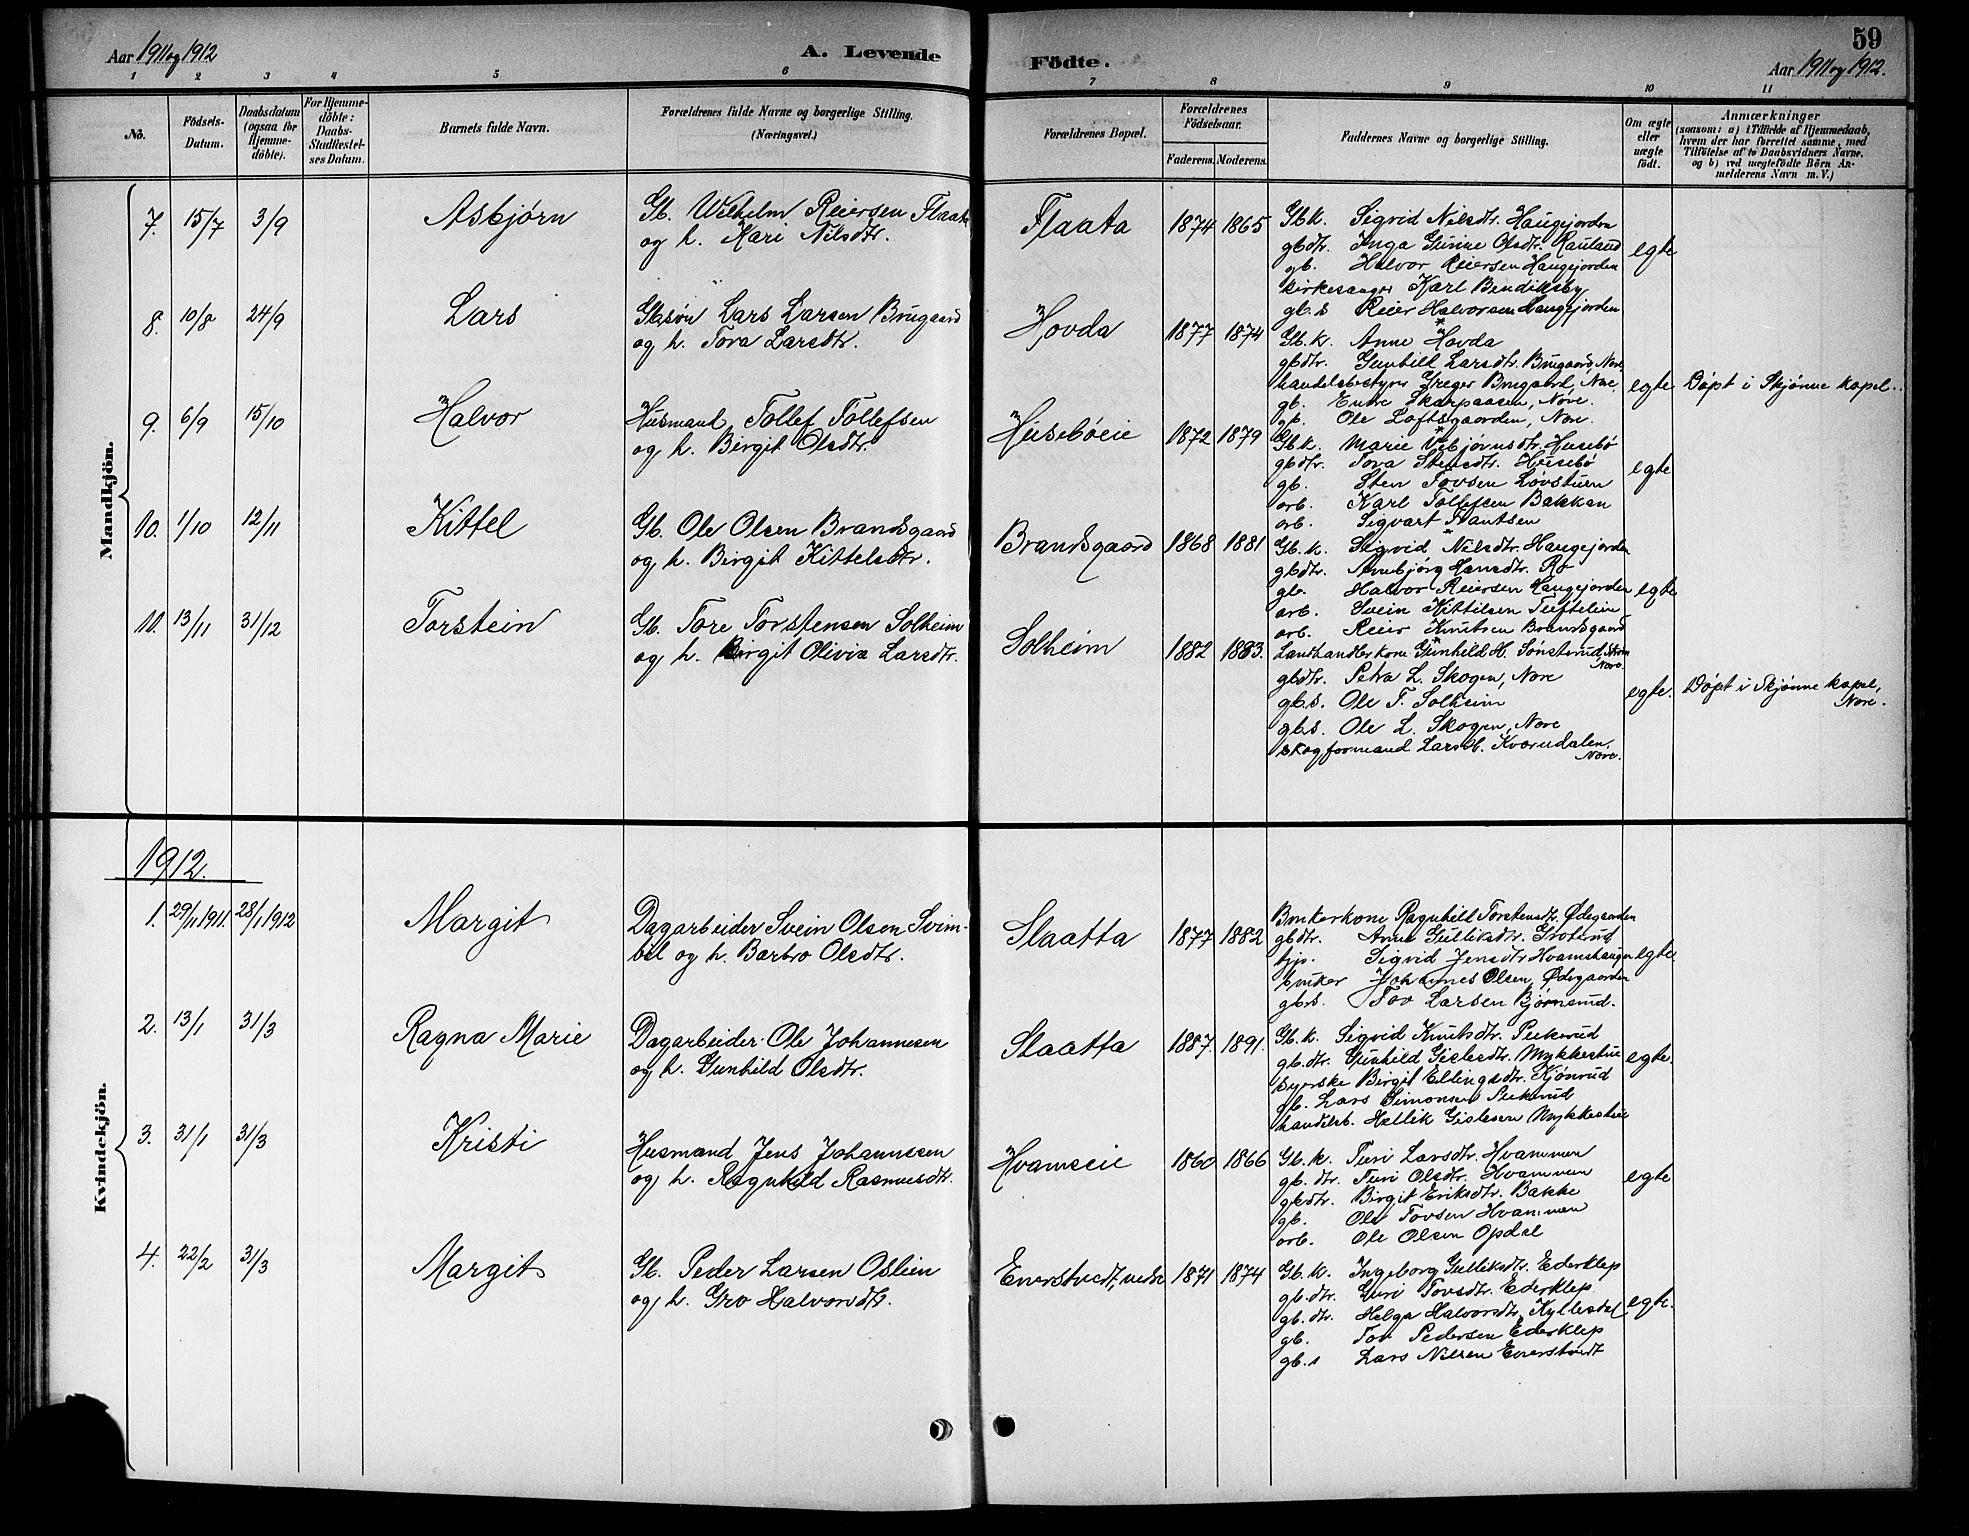 59
Aar 1911 og 1912
A. Levende Födte.
Aar 1911 og 1912.
1 2 3 4 5 6 7 8 9 10 11
No.
Födsels-Datum.
Daabsdatum (ogsaa for Hjemme-döbte).
For Hjemme-döbte: Daabs-Stadfæstel-ses Datum.
Barnets fulde Navn.
Forældrenes fulde Navne og borgerlige Stilling. (Næringsvei.)
Forældrenes Bopæl.
Forældrenes Födselsaar.
Faderens. Moderens.
Faddernes Navne og borgerlige Stilling.
Om ægte eller uægte födt.
Anmærkninger
(saasom: a) i Tilfælde af Hjemmedaab, hvem der har forrettet samme, med Tilföielse af to Daabsvidners Navne, og b) ved uægtefödte Börn An-melderens Navn m. V.)
Mandkjön.
7. 15/7 3/9 Asbjørn
Gb. Wilhelm Reiersen Flaata
og h. Kari Nilsdtr.
Flaata 1874 1865
Gbk. Sigrid Nilsdtr. Haugejorden
gbdtr. Inga Gurine Olsdtr. Rauland
gb. Halvor Reiersen Haugejorden
kirkesanger Karl Bendiksby
gb.s Reier Halvorsen Haugejorden
egte
8. 10/8 24/9 Lars
Gbsøn Lars Larsen Brugaard
og h. Tora Larsdtr.
Hovda 1877 1874
Gb.k. Anne Hovda
gbdtr. Gunhild Larsdtr. Brugaard, Nore
handelsbestyrer Greger Brugaard, Nore
gb. Endre Skarpaasen, Nore.
gb. Ole Loftsgaarden, Nore.
egte Døpt i Skjønne kapel.
9. 6/9 15/10 Halvor
Husmand Tollef Tollefsen
og h. Birgit Olsdtr.
Husebøeie 1872 1879
Gb.k. Marie Vebjørnsdtr. Husebø
gbdtr. Tora Stensdtr. Husebø
gb. Sten Tovsen Løvstuen
arb. Karl Tollefsen Bakkan
arb. Sigvart Frantsen
egte
10. 1/10 12/11 Kittel
Gb. Ole Olsen Brandsgaard
og h. Birgit Kittelsdtr.
Brandsgaard 1868 1881
Gb.k. Sigrid Nilsdtr. Haugejorden
gbdtr. Annbjørg Hansdtr. Ro
gb. Halvor Reiersen Haugejorden
arb. Svein Kittilsen Tuftelein
arb. Reier Knutsen Brandsgaard
egte
11. 13/11 31/12 Torstein
Gb. Tore Torstensen Solheim
og h. Birgit Olivia Larsdtr.
Solheim 1882 1883.
Landhandlerkone Gunhild H. Sønsterud, Nore
gbdtr. Petra L. Skogen, Nore
gb.s. Ole T. Solheim
gb.s. Ole L. Skogen, Nore
skogformand Lars H. Kværndalen, Nore.
egte. Døpt i Skjønne kapel,
Nore.
1912.
Kvindekjön.
1. 29/11 1911. 28/1 1912 Margit
Dagarbeider Svein Olsen Svim-
bil og h. Barbro Olsdtr.
Slaatta 1877 1882
Brukerkone Ragnhild Torstensdtr. Ødegaarden
gbdtr. Anne Gulliksdtr. Groterud
tjp. Sigrid Jensdtr. Hvamshaugen
bruker Johannes Olsen Ødegaarden
gb.s. Tov Larsen Bjørnsrud.
egte
2. 13/1 31/3 Ragna Marie
Dagarbeider Ole Johannesen
og h. Gunhild Olsdtr.
Slaatta 1887. 1891.
Gb.k. Sigrid Knutsdtr. Pukerud
gb.dtr. Gunhild Gislesdtr. Mykkestue
syerske Birgit Ellingsdtr. Kjønrud
gb. Lars Simonsen Pukerud
handelsb. Hellik Gislesen Mykkestue
egte.
3. 31/1 31/3 Kristi
Husmand Jens Johannesen
og h. Ragnhild Rasmusdtr.
Hvamseie 1860 1866
Gb.k. Turi Larsdtr. Hvammen
gb.dtr. Turi Olsdtr. Hvammen
gbdtr. Birgit Eriksdtr. Bakke
gb. Ole Tovsen Hvammen
arb. Ole Olsen Opdal
egte
4. 22/2 31/3 Margit
Gb. Peder Larsen Oslien
og h. Gro Halvorsdtr.
Enerstvedt, nedre 1871 1874
Gb.k. Ingeborg Gulliksdtr. Ederklep
gb.dtr. Guri Tovsdtr. Ederklep
gb.dtr. Helga Halvorsdtr. Kyllesdal
gb. Tov Pedersen Ederklep
gb.s Lars Nilsen Enerstvedt
egte.